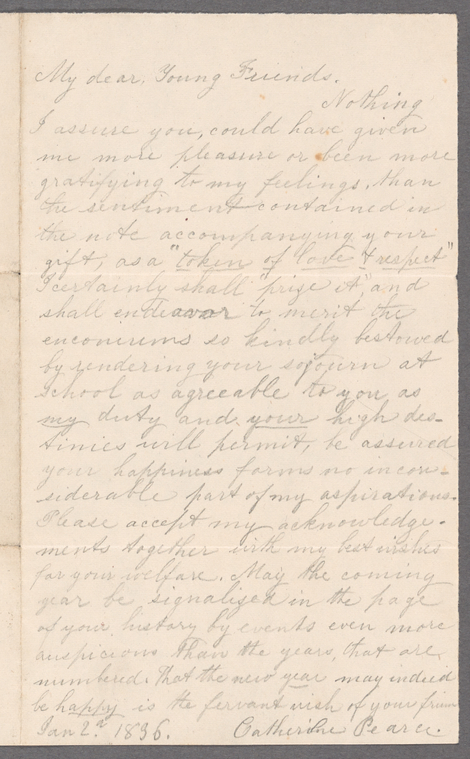 My dear Young Friends.
Nothing
I assure you, could have given
me more pleasure or been more
gratifying to my feelings, than
the sentiment contained in
the note accompanying your
gift, as a "token of love & respect"
I certainly shall "prize it" and
shall endeavor to merit the
enconirems so kindly bestowed
by rendering your sojourn at
school as agreeable to you as
my duty and your high des-
tinies will permit, be assured
your happiness forms no incon-
siderable part of my aspirations.
Please accept my acknowledge-
ments together with my best wishes
for your welfare. May the coming
year be signalised in the page
of your history by events even more
auspicious than the years, that are
numbered. That the new year may indeed
be happy is the fervant wish of your friend
Jan 2.d 1836. Catherine Pearce.